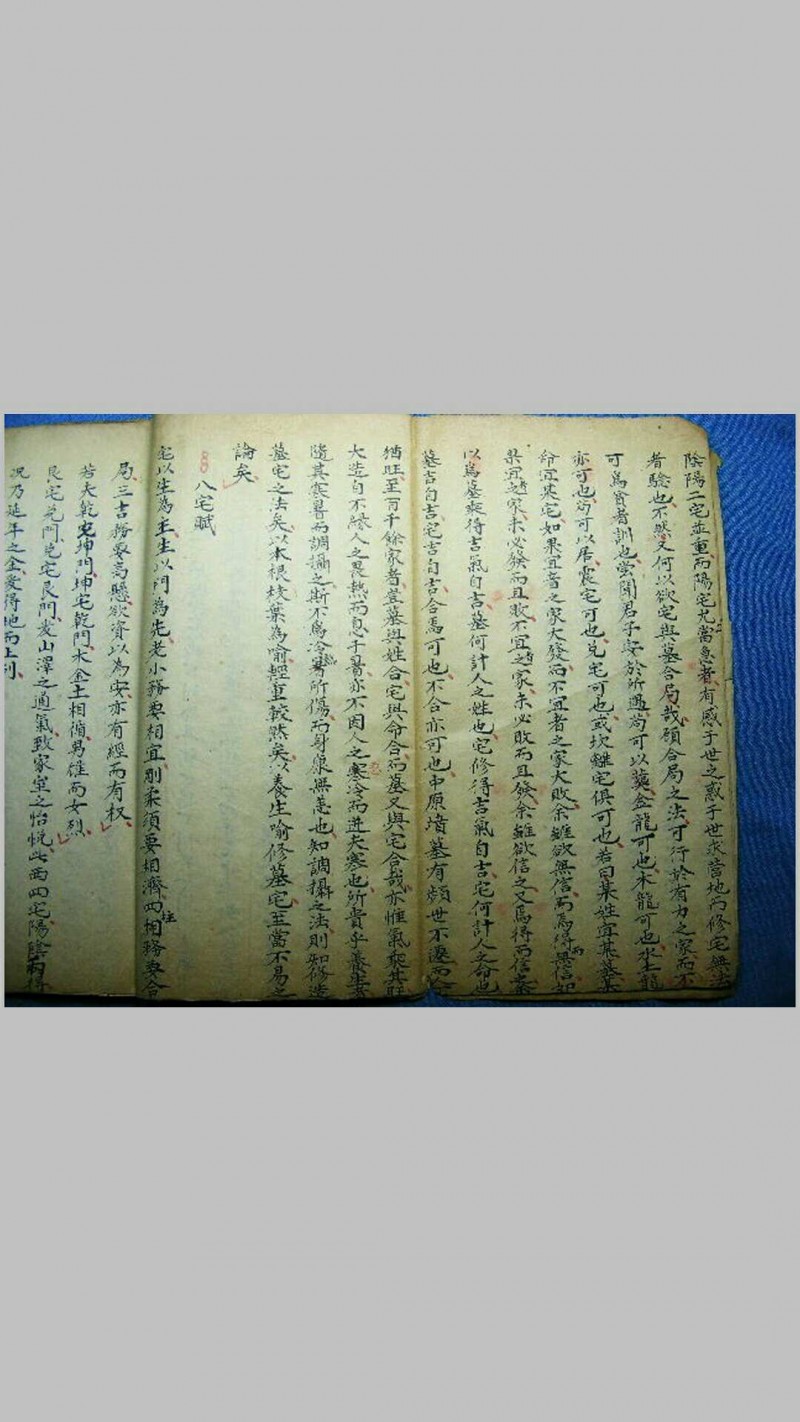 陰陽二宅並重而陽宅尤當急者有感于世之惑于世求营地而修宅無法
者驗也不然又何以欲宅與墓合局哉顧合局之法可行於有力之家而不
可為貧者訓也嘗聞君子安於所遇苟可以葬金龍可也木龍可也水土龍
亦可也苟可以居震宅可也兌宅可也或坎離宅俱可也若曰某姓宜某墓某
命宜某宅如果宜者之家大發而不宜者之家大敗余雖欲無信而焉得無信如
某宜之家未必發而且敗不宜之家未必敗而且發余雖欲信之又焉得而信葢
以為墓乘得吉氣自吉墓何計人之姓也宅修得吉氣自吉宅何計人之命也
墓吉自吉宅吉自吉合焉可也不合亦可也中原墳墓有頻世不遷而
猶旺至百千餘家者豈墓與姓合宅與命合而墓又與宅合哉亦惟氣聚其旺
大造自不緣人之畏熱而息于暑亦不因人之寒冷而进夫寒也所貴乎養生者
隨其寒暑而調攝之斯不為冷暑所傷而身康無恙也知調攝之法則知修造
墓宅之法矣以木根枝葉為喻輕重較然矣以養生喻修墓宅至當不易之
論矣
八宅賦
宅以生為主生以門為先老小務要相宜剛柔須要相濟四柱相務要合
局三吉務要高懸欲資以為安亦有經而有权
若夫乾宅坤門坤宅乾門木金土相循男雄而女烈
艮宅兌門兌宅艮門友山澤之通氣致家室之怡悅此西四宅陽陰兩得
况乃延年之金愛得地而上利